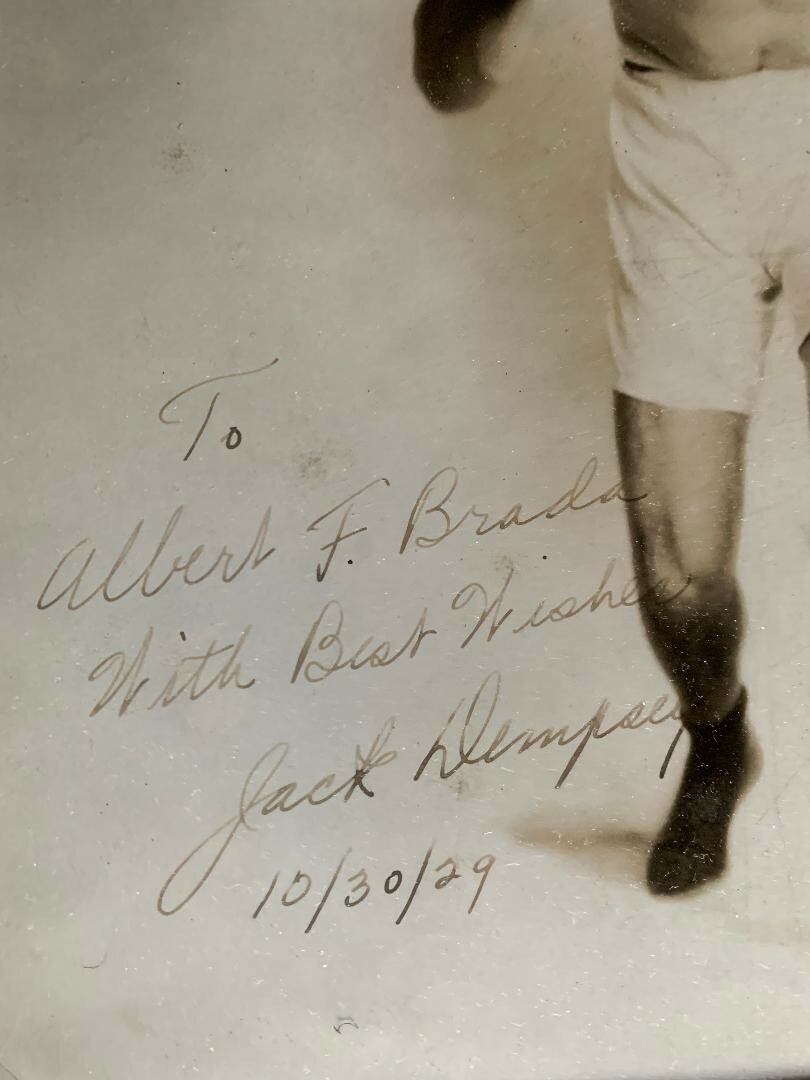 To
Albert F. Brada
With Best Wishes
Jack Dempsey
10/30/29